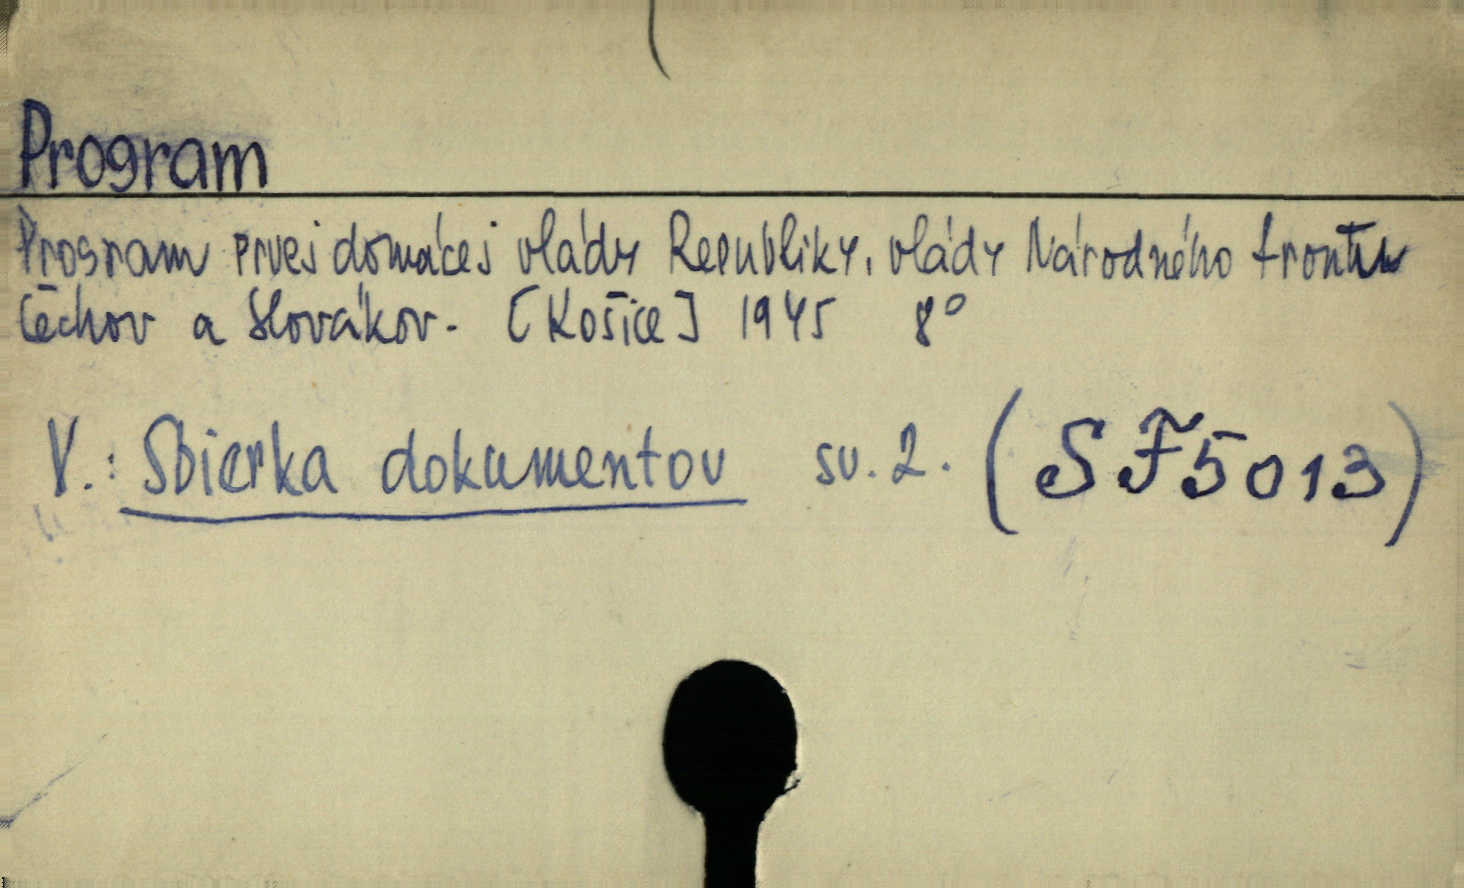 Program
Program prvej domácej vlády Republiky, vlády Národného frontu
Čechov a Slovákov. [Košice] 1945 8°
V.: Sbierka dokumentov sv. 2. (SF5013)